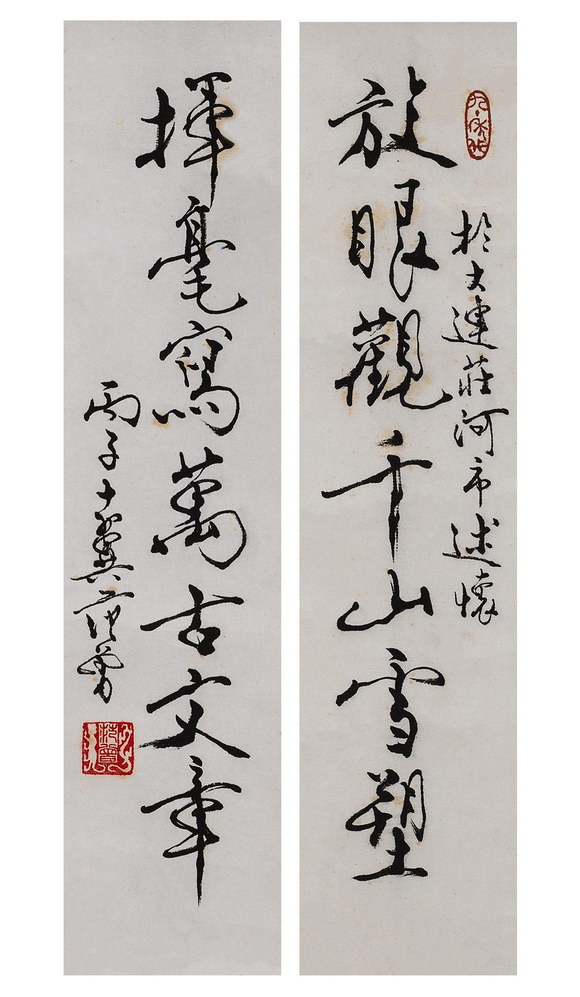 放眼觀千山雪塑
於大連莊河市述懷
揮毫寫萬古文章
丙子十翼范曾